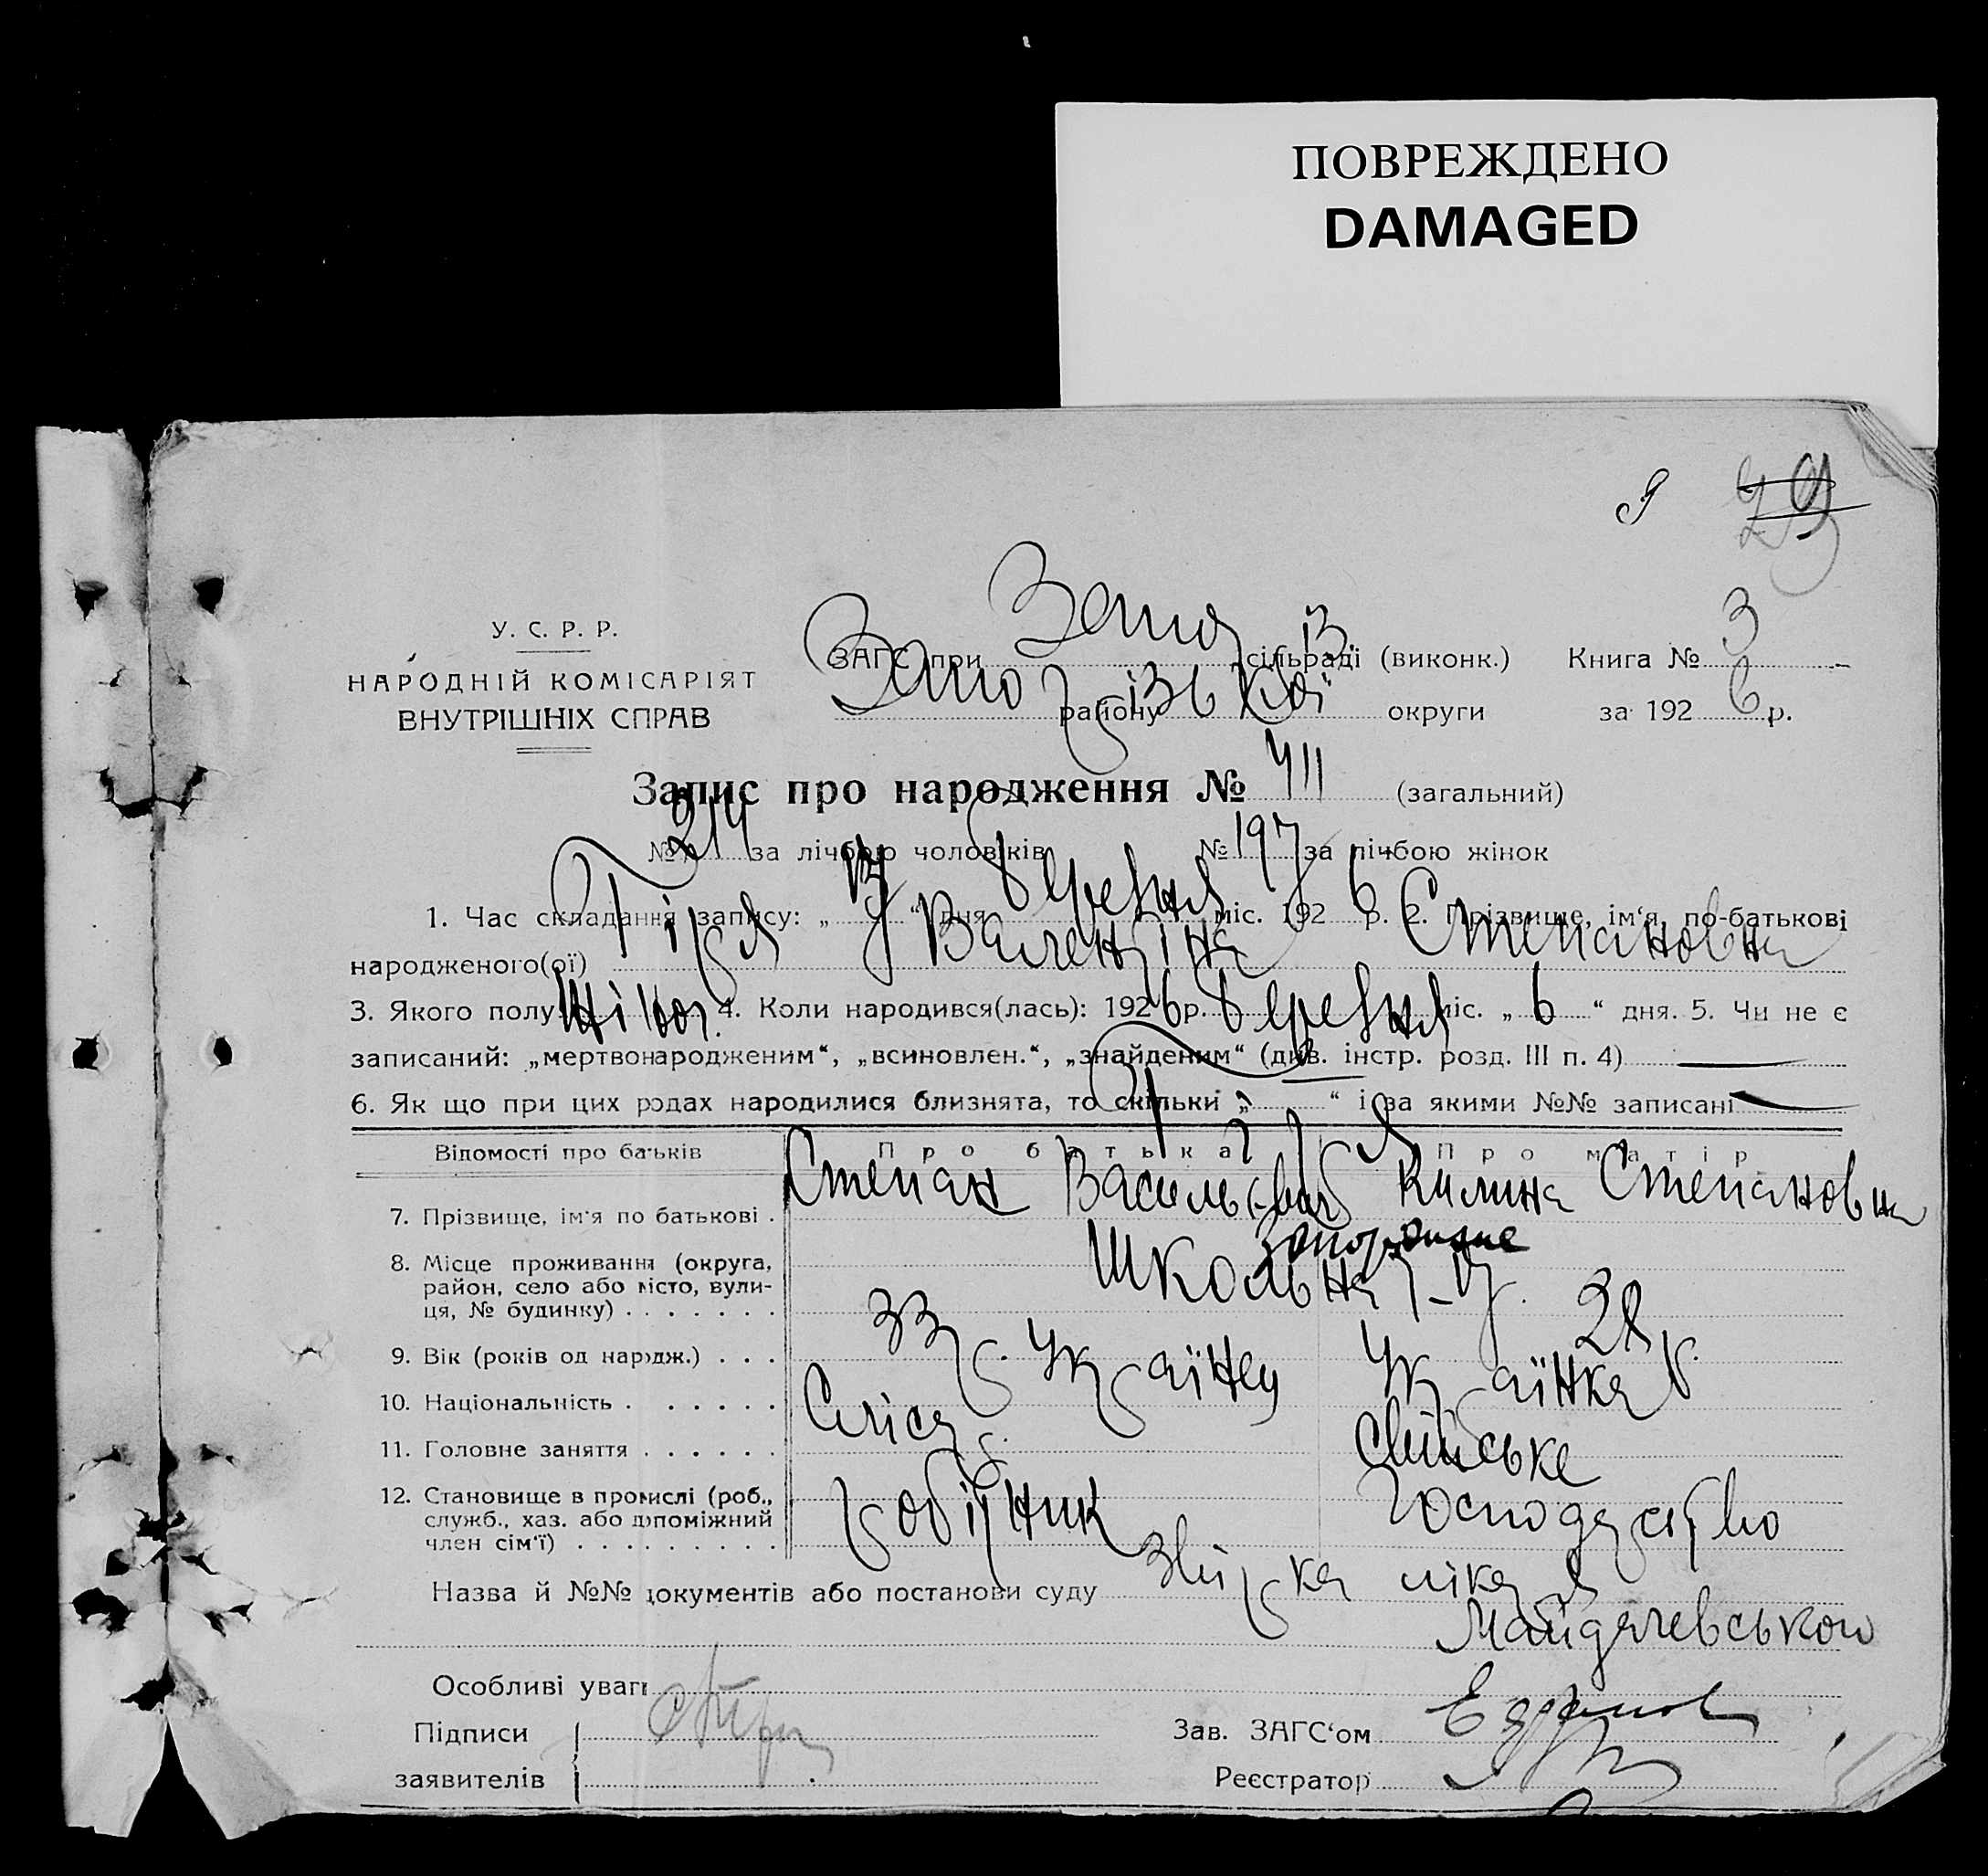 ПОВРЕЖДЕНО
DAMAGED
9 29
У. С. Р. Р.
НАРОДНІЙ КОМІСАРІЯТ
ВНУТРІШНІХ СПРАВ
ЗАГС при Запоріз. сільраді (виконк.) Книга № 3
Запорізької району округи за 1926 р.
Запис про народження № 411 (загальний)
№ 214 за лічбою чоловіків № 197 за лічбою жінок
1. Час складання запису: „ “ дня Березня міс. 1926 р. 2. Прізвище, ім‘я, по-батькові
народженого(ої) Гіря Валентіна Степановна
3. Якого полу: жіноч. 4. Коли народився(лась): 1926 р. Березня міс. „ 6 “ дня. 5. Чи не є
записаний: „мертвонародженим“, „всиновлен.“, „знайденим“ (див. інстр. розд. III п. 4)
6. Як що при цих родах народилися близнята, то скільки „ “ і за якими №№ записані
Відомості про батьків Про батька Про матір
Гіря
7. Прізвище, ім‘я по батькові . Степан Васильевич Килина Степановна
8. Місце проживання (округа, район, село або місто, вулиця, № будинку) . . . . . . . Запоріжже
Школьна
9. Вік (років од нарудж.) . . . 33 р. 28 р.
10. Національність . . . . . . . Українец Українка
11. Головне заняття . . . . . . Слюсар Хатнське
12. Становище в промислі (роб., служб., хаз. або допоміжний член сім‘ї) . . . . . . . . . робітник господарство
Назва й №№ документів або постанови суду Звірка лікаря
Майдачевською
Особливі уваги
Підписи
заявителів
Зав. ЗАГС‘ом
Реєстратор